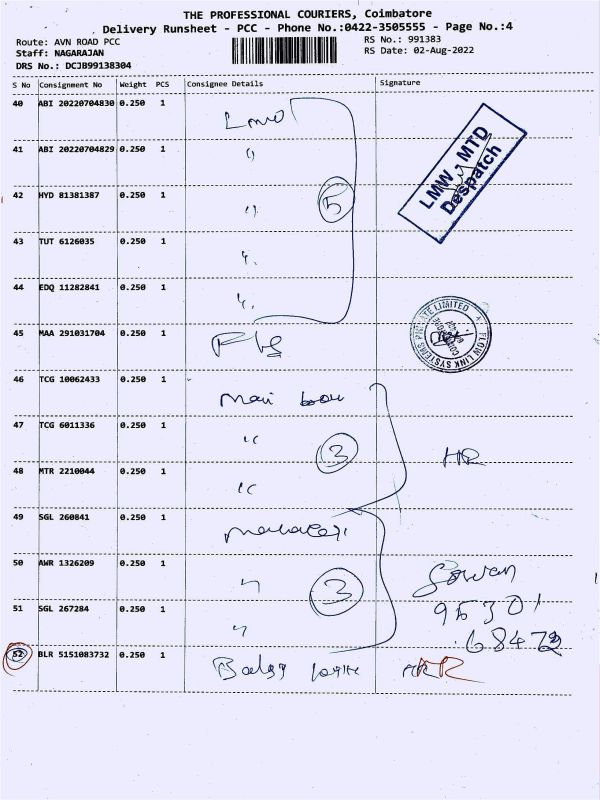 THE PROFESSIONAL COURIERS, Coimbatore
Delivery Runsheet - PCC - Phone No.:0422-3505555 - Page No.:4
Route: AVN ROAD PCC
RS No.: 991383
Staff: NAGARAJAN
RS Date: 02-Aug-2022
DRS No.: DCJB99138304
S No Consignment No Weight PCS Consignee Details Signature
40 ABI 20220704830 0.250 1
41 ABI 20220704829 0.250 1 "
LMW MTD
Despatch
42 HYD 81381387 0.250 1 " 5
43 TUT 6126035 0.250 1 "
44 EDQ 11282841 0.250 1 "
45 MAA 291031704 0.250 1
FLOW LINK SYSTEMS PRIVATE LIMITED
46 TCG 10062433 0.250 1
47 TCG 6011336 0.250 1 " 3
48 MTR 2210044 0.250 1 "
HR
49 SGL 260841 0.250 1
50 AWR 1326209 0.250 1 " 3
51 SGL 267284 0.250 1 "
95301
68472
52 BLR 5151083732 0.250 1